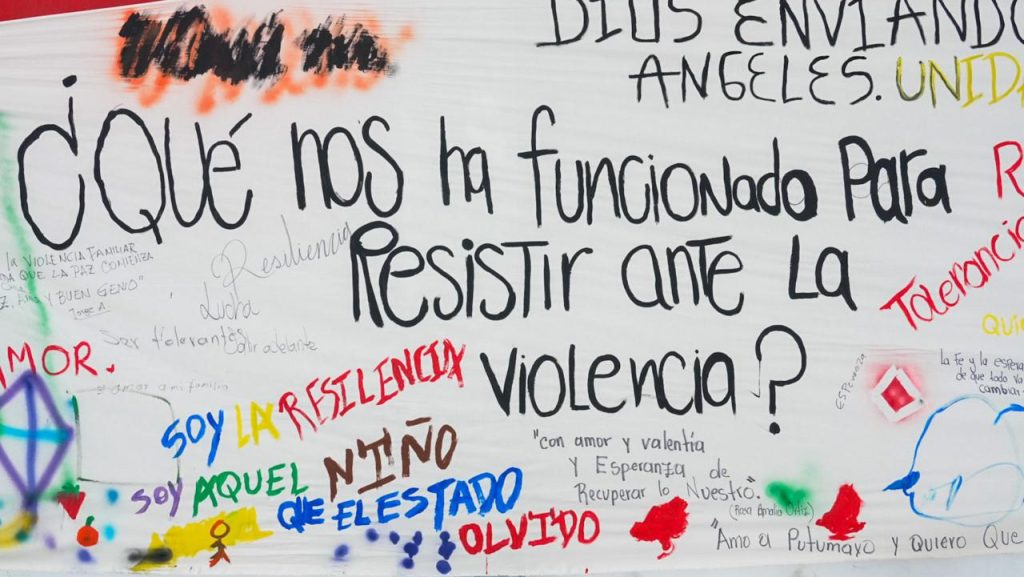 DIOS ENVIANDO
ANGELES. UNIDA
¿QUé nos ha funcionado para
Resistir ante la
violencia?
la VIOLENCIA FAMILIAR
QUE LA PAZ COMIENZA
Y BUEN GENIO"
Jorge A.
Resiliencia
Lucha
Ser tolerantes
Salir adelante
Tolerancia
AMOR.
a mi familia
SOY LA RESILENCIA
SOY AQUEL NIÑO
QUE EL ESTADO
OLVIDO
"con amor y valentía
y Esperanza de
Recuperar lo Nuestro".
(Rosa Amalia Ortiz)
ESPERANZA
la Fe y la espera
de que todo va
cambiar
"Amo el Putumayo y Quiero Que